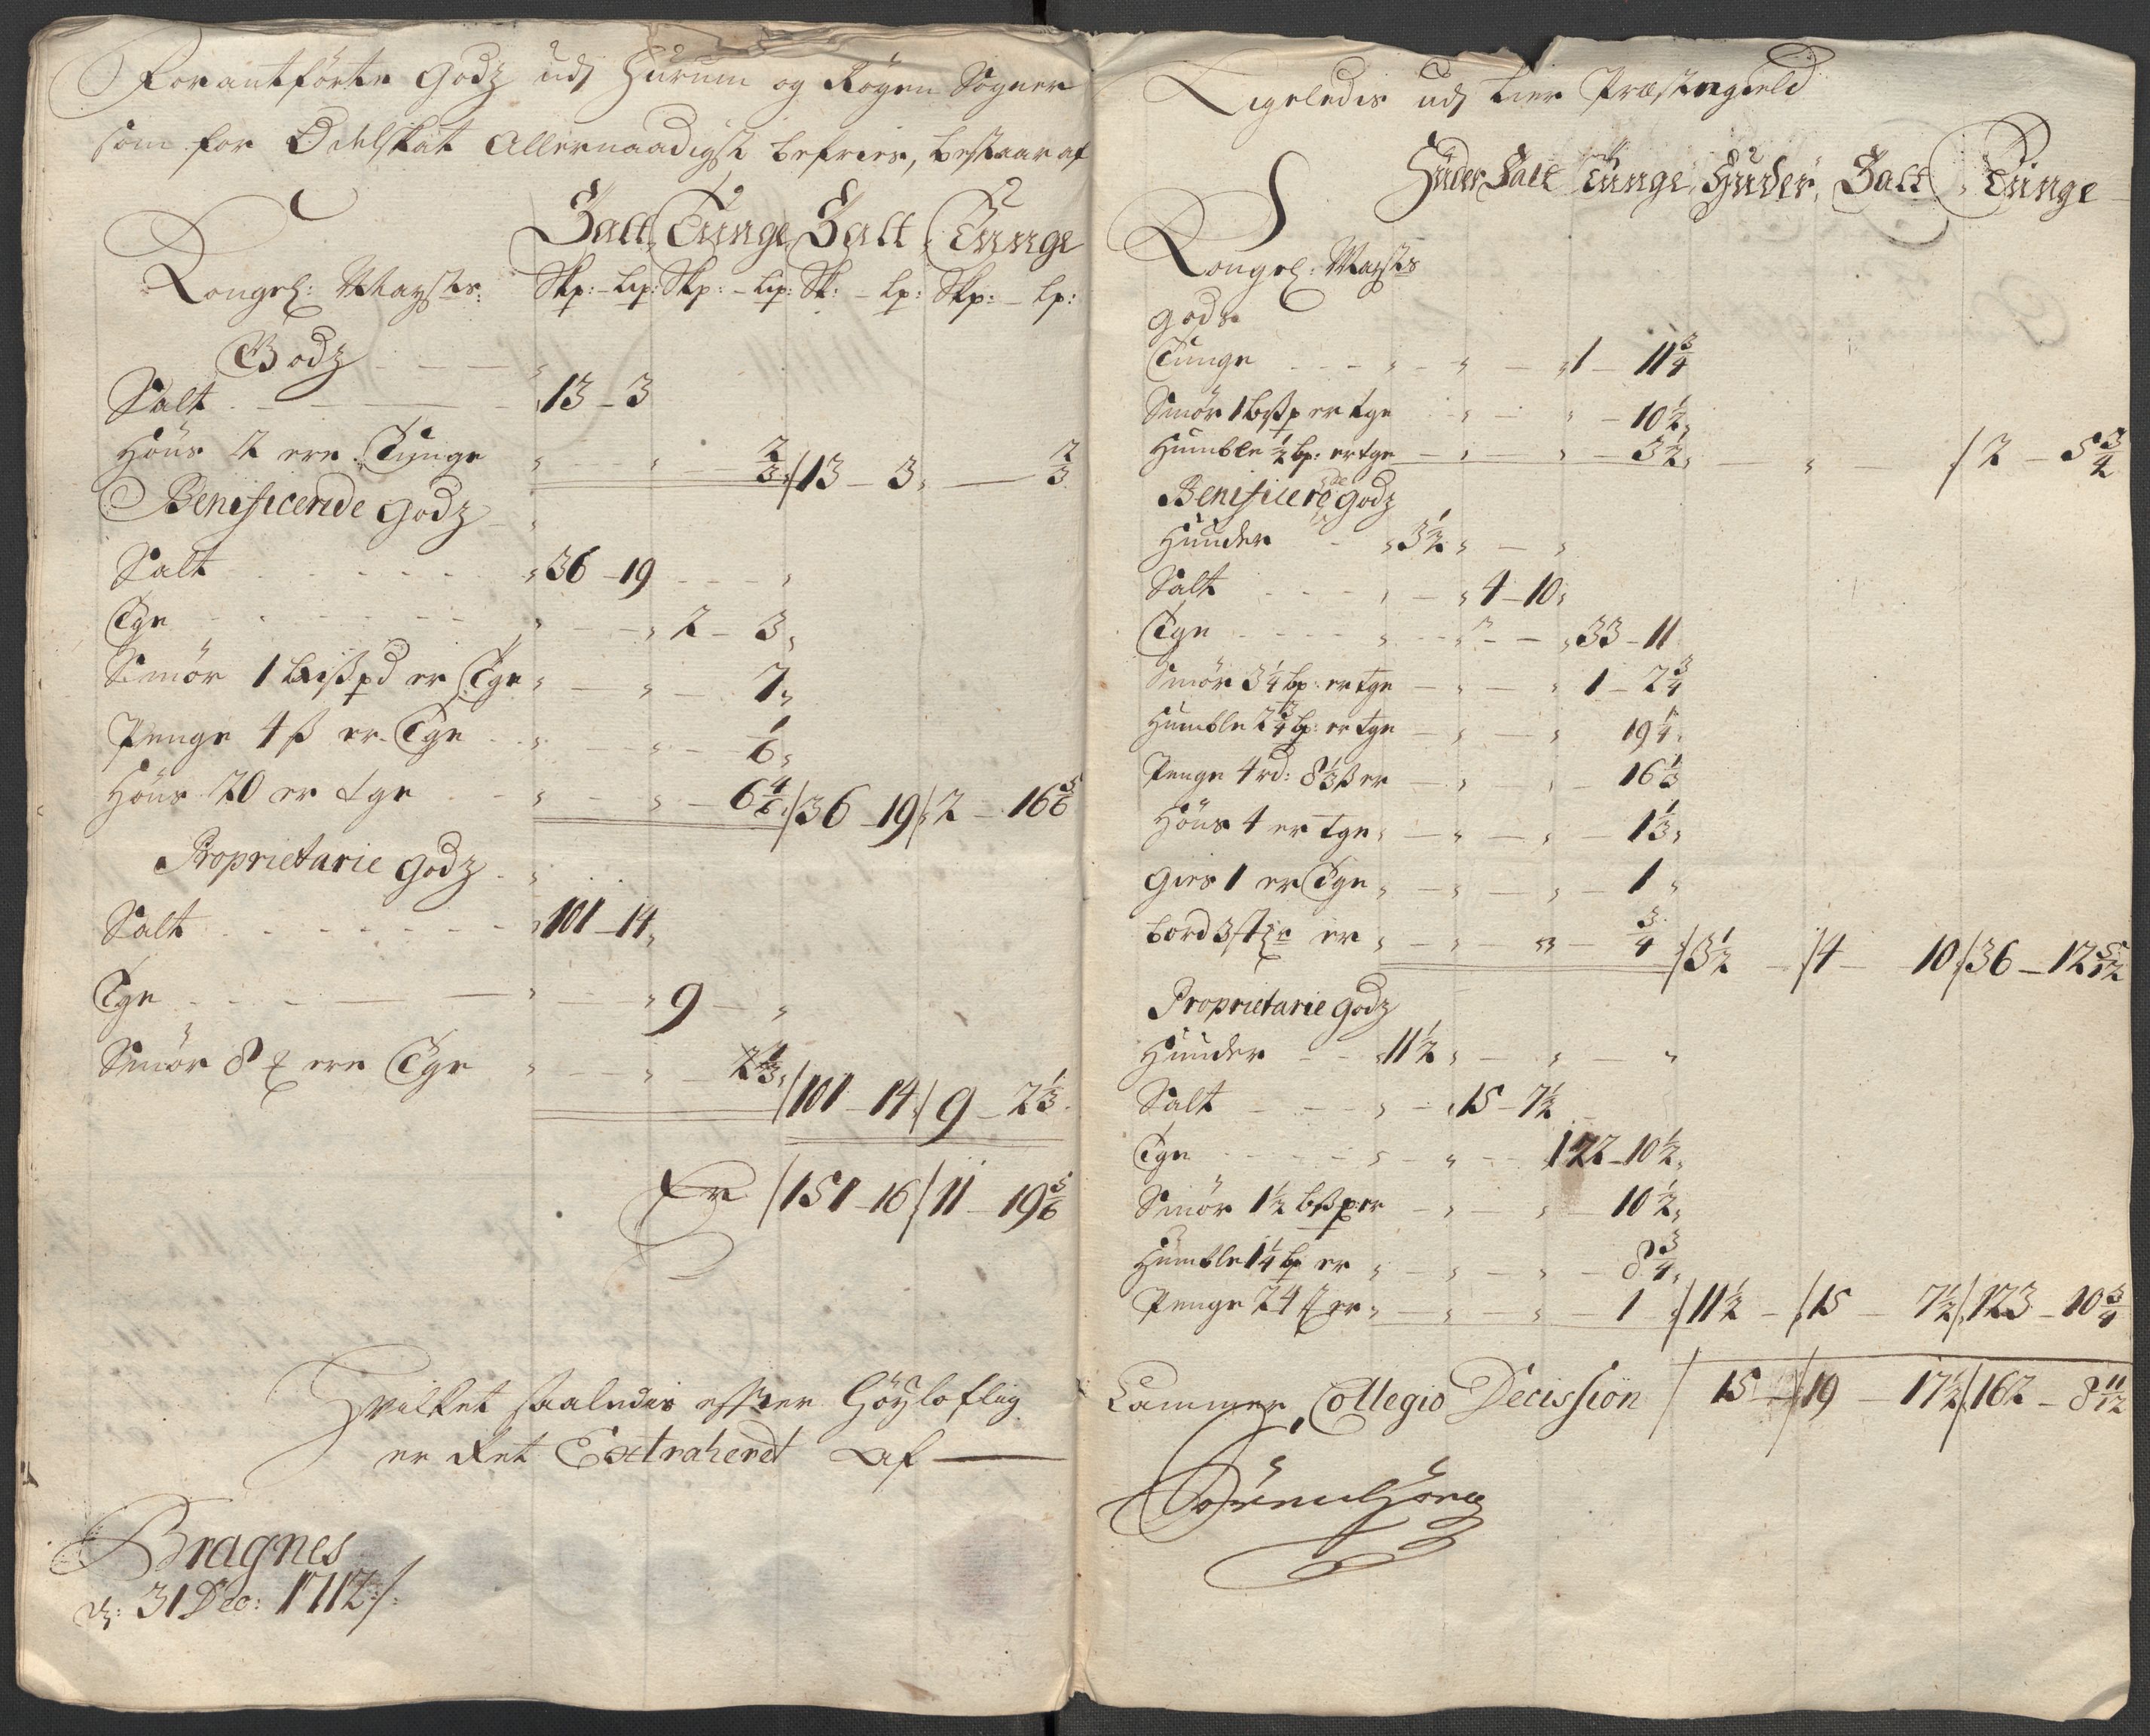 Forantförte Godz udj Hurum og Röyen Sogner
som for Odelskat Allernaadigst befries, bestaar af
Salt Tunge Salt Tunge
Kongel: Maysts: Skp: - Lp: Skp: - Lp: Sk: - Lp: Skp: - Lp:
Godz
Salt 13 - 3
Höns 2 ere Tunge 2/3 / 13 - 3 - 2/3
Benificerede Godz
Salt 36 - 19
Tge 2 - 3
Smör 1 Lißpd er Tge 7
Penge 4 ß er Tge 1/6
Höns 20 er tge 6 4/6 / 36 - 19 / 2 - 16 5/6
Proprietarie Godz
Salt 101 - 14
Tge 9 -
Smör 8 ere Tge 2 1/3 / 101 - 14 / 9 - 2 1/3
Er / 151 - 16 / 11 - 19 5/6
Hvilket saaledis efter Höyloflig
er det Extraherdt af
Bragnes
d: 31 Dec: 1712 /:
Ligeledis udj Lier Præstegield
Huder Salt Tunge Huder Salt Tunge
Kongel: Maysts
Gods
Tunge 1 - 11 3/4
Smör 1 bßp er tge 10 1/2
Humble 1/2 bp: er tge 3 1/2 / 2 - 5 3/4
Benificerede Godz
Huuder 3 1/2
Salt 4 - 10
Tge 33 - 11
Smör 3 1/4 bp: er tge 1 - 2 3/4
Humble 2 3/4 bp: er tge 19 1/4
Penge 4 rd: 8 1/3 ß er 16 1/3
Höns 4 er Tge 1 1/3
Gies 1 er Tge 1
Bord 3 er 3/4 / 3 1/2 - / 4 - 10 / 36 - 12 5/12
Proprietarie Godz
Huuder 11 1/2
Salt 15 - 7 1/2
Tge 122 - 10 1/2
Smör 1 1/2 bßp er 10 1/2
Humble 1 1/4 bp er 8 3/4
Penge 24 ß er 1 / 11 1/2 - / 15 - 7 1/2 / 123 - 10 3/4
Cammer Collegio Decission / 15 - / 19 - 17 1/2 / 162 - 8 11/12